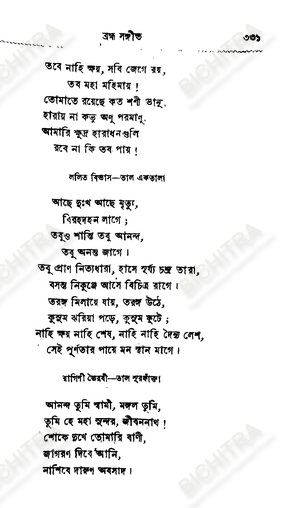 ব্রহ্ম সঙ্গীত ৩৩১
তবে নাহি ক্ষয়, সবি জেগে রয়,
তব মহা মহিমায় !
তোমাতে রয়েছে কত শশী ভানু,
হারায় না কভু অণু পরমাণু,
আমারি ক্ষুদ্র হারাধনগুলি
রবে না কি তব পায় !
ললিত বিভাস—তাল একতালা
আছে দুঃখ আছে মৃত্যু,
বিরহদহন লাগে ;
তবুও শান্তি তবু আনন্দ,
তবু অনন্ত জাগে ।
তবু প্রাণ নিত্যধারা, হাসে সূর্য্য চন্দ্র তারা,
বসন্ত নিকুঞ্জে আসে বিচিত্র রাগে ।
তরঙ্গ মিলায়ে যায়, তরঙ্গ উঠে,
কুসুম ঝরিয়া পড়ে, কুসুম ফুটে ;
নাহি ক্ষয় নাহি শেষ, নাহি নাহি দৈন্য লেশ,
সেই পূর্ণতার পায়ে মন স্থান মাগে ।
রাগিণী ভৈরবী—তাল সুরফাঁক্তা
আনন্দ তুমি স্বামী, মঙ্গল তুমি,
তুমি হে মহা সুন্দর, জীবননাথ !
শোকে দুখে তোমারি বাণী,
জাগরণ দিবে আনি,
নাশিবে দারুণ অবসাদ ।
BICHITRA